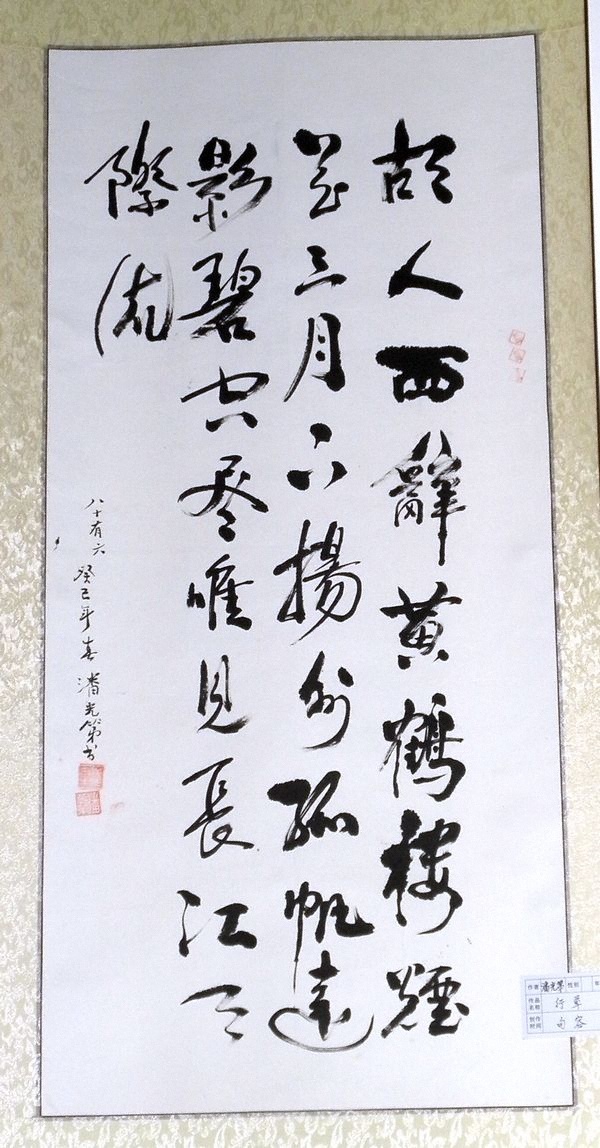 故人西辭黄鶴樓煙
花三月下揚州孤帆遠
影碧空尽唯見長江天
際流
八十有六 癸巳年春 潘光第书
作者 潘光第 性别 年
作品名称 行草
创作时间 句容